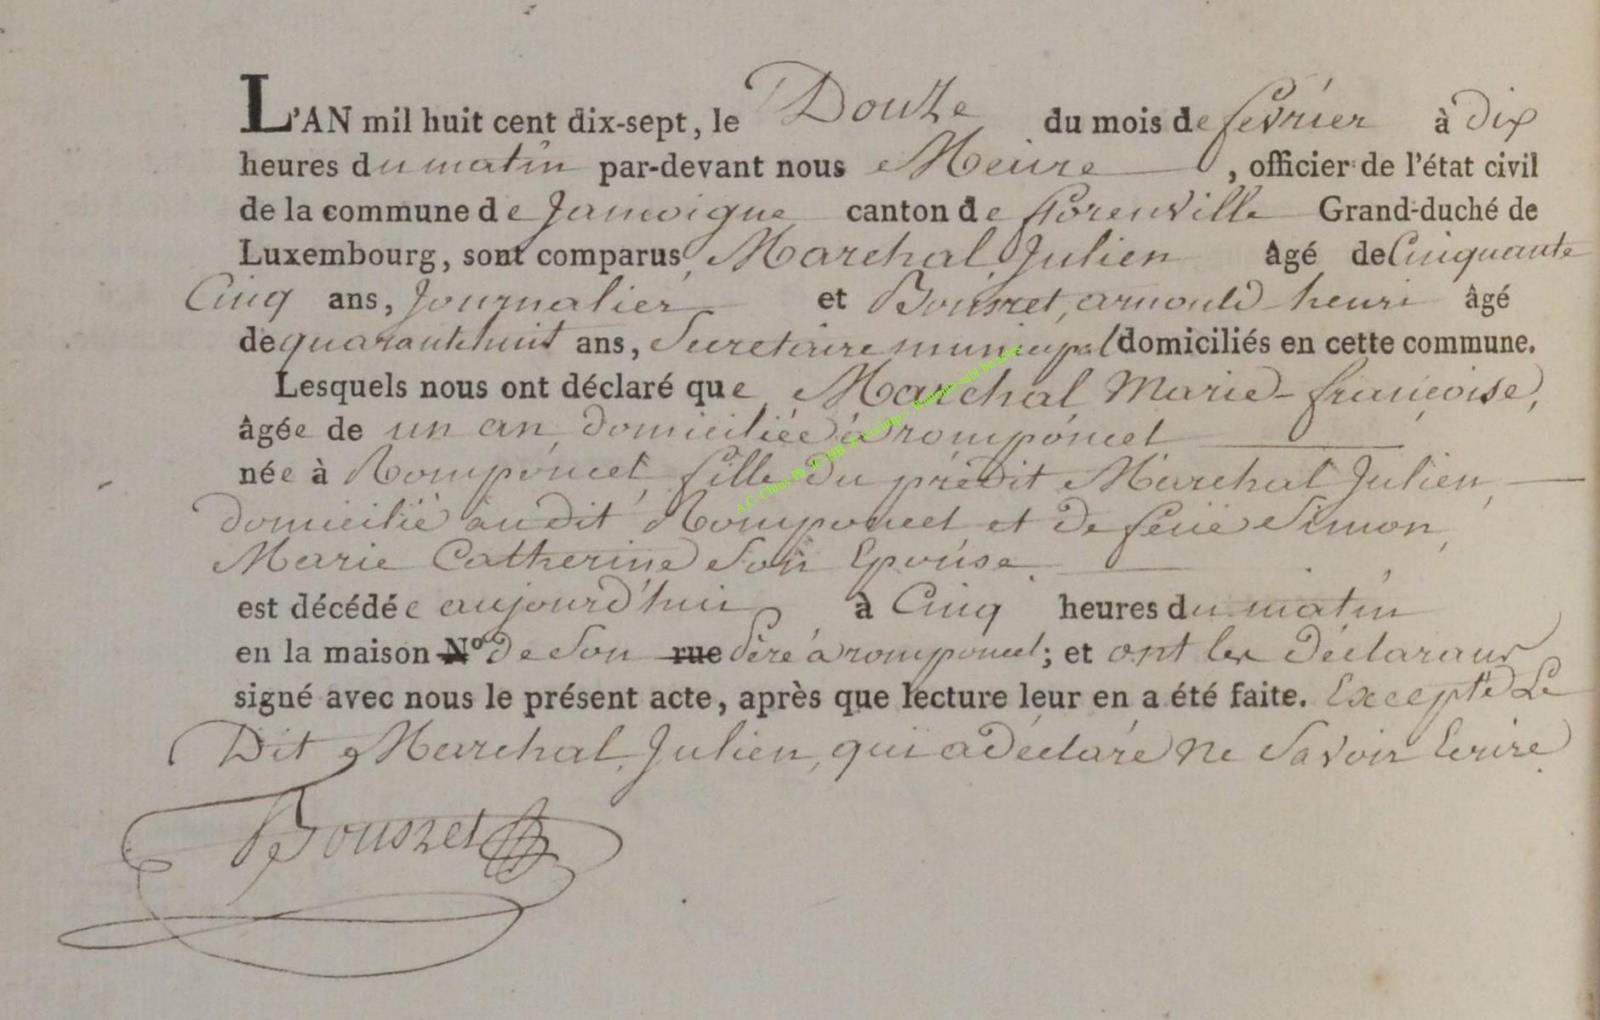 L'AN mil huit cent dix-sept, le Douze du mois de févrièr à dix
heures du matin par-devant nous Meure, officier de l'état civil
de la commune de Jamoigne canton de florenville Grand-duché de
Luxembourg, sont comparus Marchal Julien âgé de Cinquante
Cinq ans, Journalier et Bousret, arnould henri âgé
de quarantehuit ans, Secretaire municipal domiciliés en cette commune.
Lesquels nous ont déclaré que Marchal Marie-françoise,
âgée de un an domiciliée à romponcel
née à Romponcel, fille du prédit Marchal Julien,
domicilié audit Romponcel et de feue Simon,
Marie Catherine Son Epouse
est décédée aujourd'hui à Cinq heures du matin
en la maison N.º de Son rue Père à romponcel; et ont les déclarans
signé avec nous le présent acte, après que lecture leur en a été faite. Excepté Le
Dit Marchal, Julien, qui a déclaré Ne Savoir Ecrire
Bousret